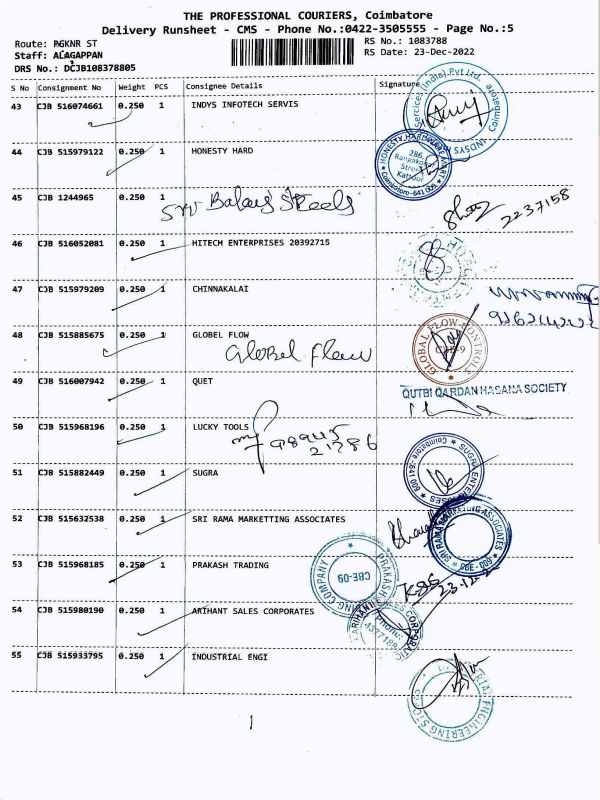 THE PROFESSIONAL COURIERS, Coimbatore
Delivery Runsheet - CMS - Phone No.:0422-3505555 - Page No.:5
Route: RGKNR ST
RS No.: 1083788
Staff: ALAGAPPAN
RS Date: 23-Dec-2022
DRS No.: DCJB108378805
S No Consignment No Weight PCS Consignee Details Signature
43 CJB 516074661 0.250 1 INDYS INFOTECH SERVIS
44 CJB 515979122 0.250 1 HONESTY HARD
HONESTY HARDWARE MART
286,
Street
Kattoor
Coimbatore-641 009
45 CJB 1244965 0.250 1
Sri Balaji Steels
2237158
46 CJB 516052081 0.250 1 HITECH ENTERPRISES 20392715
47 CJB 515979209 0.250 1 CHINNAKALAI
48 CJB 515885675 0.250 1 GLOBEL FLOW
Globel Flow
GLOBAL FLOW CONTROLS
CBE-9
49 CJB 516007942 0.250 1 QUET
QUTBI QARDAN HASANA SOCIETY
50 CJB 515968196 0.250 1 LUCKY TOOLS
21786
51 CJB 515882449 0.250 1 SUGRA
SUGRA ENTERPRISES
Coimbatore-641 009
52 CJB 515632538 0.250 1 SRI RAMA MARKETTING ASSOCIATES
SRI RAMA MARKETING ASSOCIATES
CBE-009
53 CJB 515968185 0.250 1 PRAKASH TRADING
PRAKASH TRADING COMPANY
CBE-09
54 CJB 515980190 0.250 1 ARIHANT SALES CORPORATES
ARIHANT SALES CORPORATION
Phone:
4377188
55 CJB 515933795 0.250 1 INDUSTRIAL ENGI
1